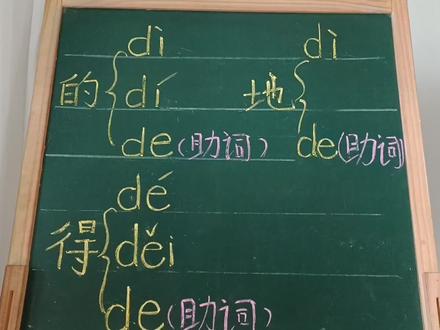 的
dì
dí
de(助词)
地
dì
de(助词)
得
dé
děi
de(助词)